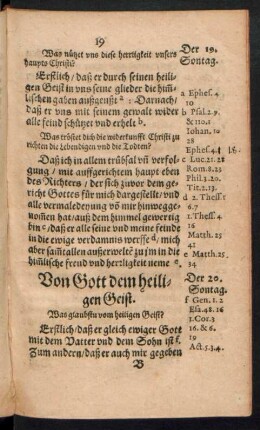 19
Was nützet vns diese herrligkeit vnsers
haupts Christi?
Erstlich/ daß er durch seinen heili-
gen Geist in vns seine glieder die him̃-
lischen gaben außgeußt a. Darnach/
daß er vns mit seinem gewalt wider
alle feind schützet vnd erhelt b.
Was tröstet dich die widerkunfft Christi zu
richten die Lebendigen vnd die Todten?
Daß ich in allem trübsal vñ verfol-
gung/ mit auffgerichtem haupt eben
des Richters/ der sich zuvor dem ge-
richt Gottes für mich dargestellt/ vnd
alle vermaledeyung võ mir hinwegge-
nom̃en hat/ auß dem himmel gewertig
bin c/ daß er alle seine vnd meine feinde
in die ewige verdamnis werffe d/ mich
aber sampt allen außerwelten zu jm in die
him̃lische freud vnd herrligkeit neme e.
Von Gott dem heili-
gen Geist.
Was glaubstu vom heiligen Geist?
Erstlich/ daß er gleich ewiger Gott
mit dem Vatter vnd dem Sohn ist f.
Zum andern/ daß er auch mir gegeben
B
Der 19.
Sontag.
a Ephes. 4
10
b Psal. 2. 9
& 110. 1
Iohan. 10
28
Ephes. 4
c Luc. 21. 28
Rom. 8. 23
Phil. 3. 20.
Tit. 2. 13.
d 2. Thess. 1
6. 7
1. Thess. 4
16
Matth. 25
41
e Matth. 25
34
Der 20.
Sontag.
f Gen. 1. 2
Esa. 48. 16
1. Cor. 3
16. & 6.
19
Act. 5. 3. 4.